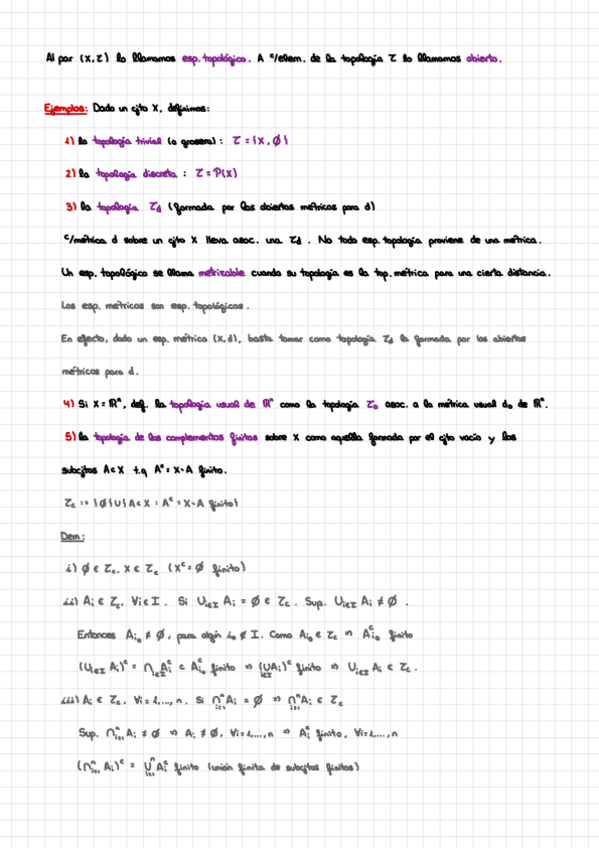 Al par (X,τ) lo llamamos esp. topológico. A c/elem. de la topología τ lo llamamos abierto.
Ejemplos: Dado un cjto X, definimos:
1) la topología trivial (o grosera): τ = {X, Ø}
2) la topología discreta : τ = P(X)
3) la topología τd (formada por los abiertos métricos para d)
c/métrica d sobre un cjto X lleva asoc. una τd. No todo esp. topología proviene de una métrica.
Un esp. topológico se llama metrizable cuando su topología es la top. métrica para una cierta distancia.
Los esp. métricos son esp. topológicos.
En efecto, dado un esp. métrico (X,d), basta tomar como topología τd la formada por los abiertos
métricos para d.
4) Si X = ℝⁿ, def. la topología usual de ℝⁿ como la topología τ₀ asoc. a la métrica usual d₀ de ℝⁿ.
5) la topología de los complementos finitos sobre X como aquella formada por el cjto vacío y los
subcjtos A⊂X t.q Aᶜ = X-A finito.
τc := {Ø} ∪ {A⊂X : Aᶜ = X-A finito}
Dem:
i) Ø ∈ τc, X ∈ τc (Xᶜ = Ø finito)
ii) Ai ∈ τc, ∀i∈I. Si ∪i∈I Ai = Ø ∈ τc. Sup. ∪i∈I Ai ≠ Ø.
Entonces Ai₀ ≠ Ø, para algún i₀ ∉ I. Como Ai₀ ∈ τc ⇒ Aᶜi₀ finito
(∪i∈I Ai)ᶜ = ∩i∈I Aiᶜ ⊂ Aᶜi₀ finito ⇒ (∪i∈I Ai)ᶜ finito ⇒ ∪i∈I Ai ∈ τc.
iii) Ai ∈ τc, ∀i = 1,...,n. Si ∩ⁿi=1 Ai = Ø ⇒ ∩ⁿi=1 Ai ∈ τc
Sup. ∩ⁿi=1 Ai ≠ Ø ⇒ Ai ≠ Ø, ∀i=1,...,n ⇒ Aiᶜ finito, ∀i=1,...,n
(∩ⁿi=1 Ai)ᶜ = ∪ⁿi=1 Aiᶜ finito (unión finita de subcjtos finitos)